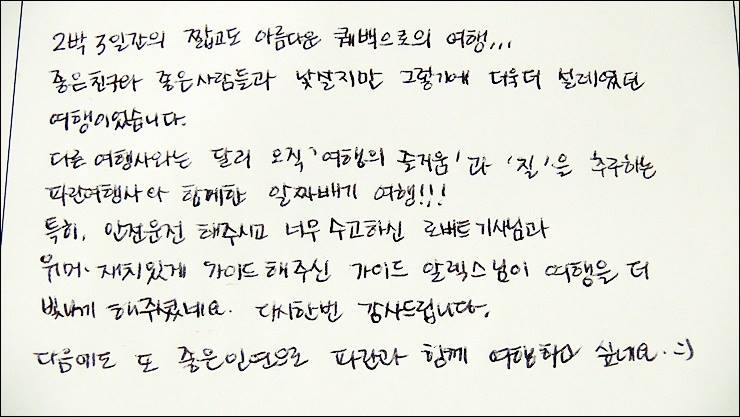 2박 3일간의 짧고도 아름다운 퀘백으로의 여행...
좋은친구와 좋은사람들과 낯설지만 그렇기에 더욱더 설레였던
여행이었습니다.
다른 여행사와는 달리 오직 '여행의 즐거움'과 '질'을 추구하는
파란여행사와 함께한 알짜배기 여행!!!
특히, 안전운전 해주시고 너무 수고하신 로버트기사님과
위머·재치있게 가이드해주신 가이드 알렉스님이 여행을 더
빛나게 해주셨네요. 다시한번 감사드립니다.
다음에도 또 좋은인연으로 파란과 함께 여행하고 싶네요. :)